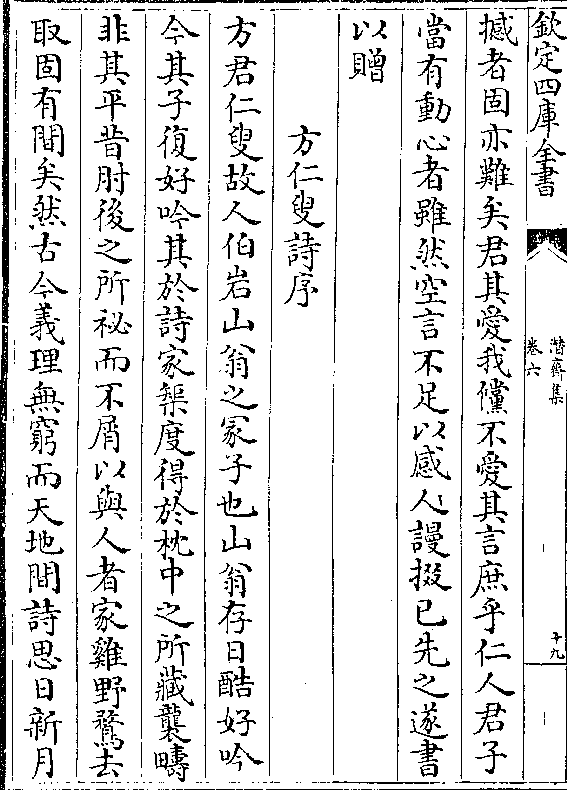 欽定四庫全書
潛齋集
卷六
十九
撼者固亦難矣君其愛我儻不愛其言庶乎仁人君子
當有動心者雖然空言不足以感人謾掇已先之遂書
以贈
方仁叟詩序
方君仁叟故人伯岩山翁之冢子也山翁存日酷好吟
今其子復好吟其於詩家榘度得於枕中之所藏襲疇
非其平昔肘後之所祕而不屑以與人者家雞野鶩去
取固有間矣然古今義理無窮而天地間詩思日新月